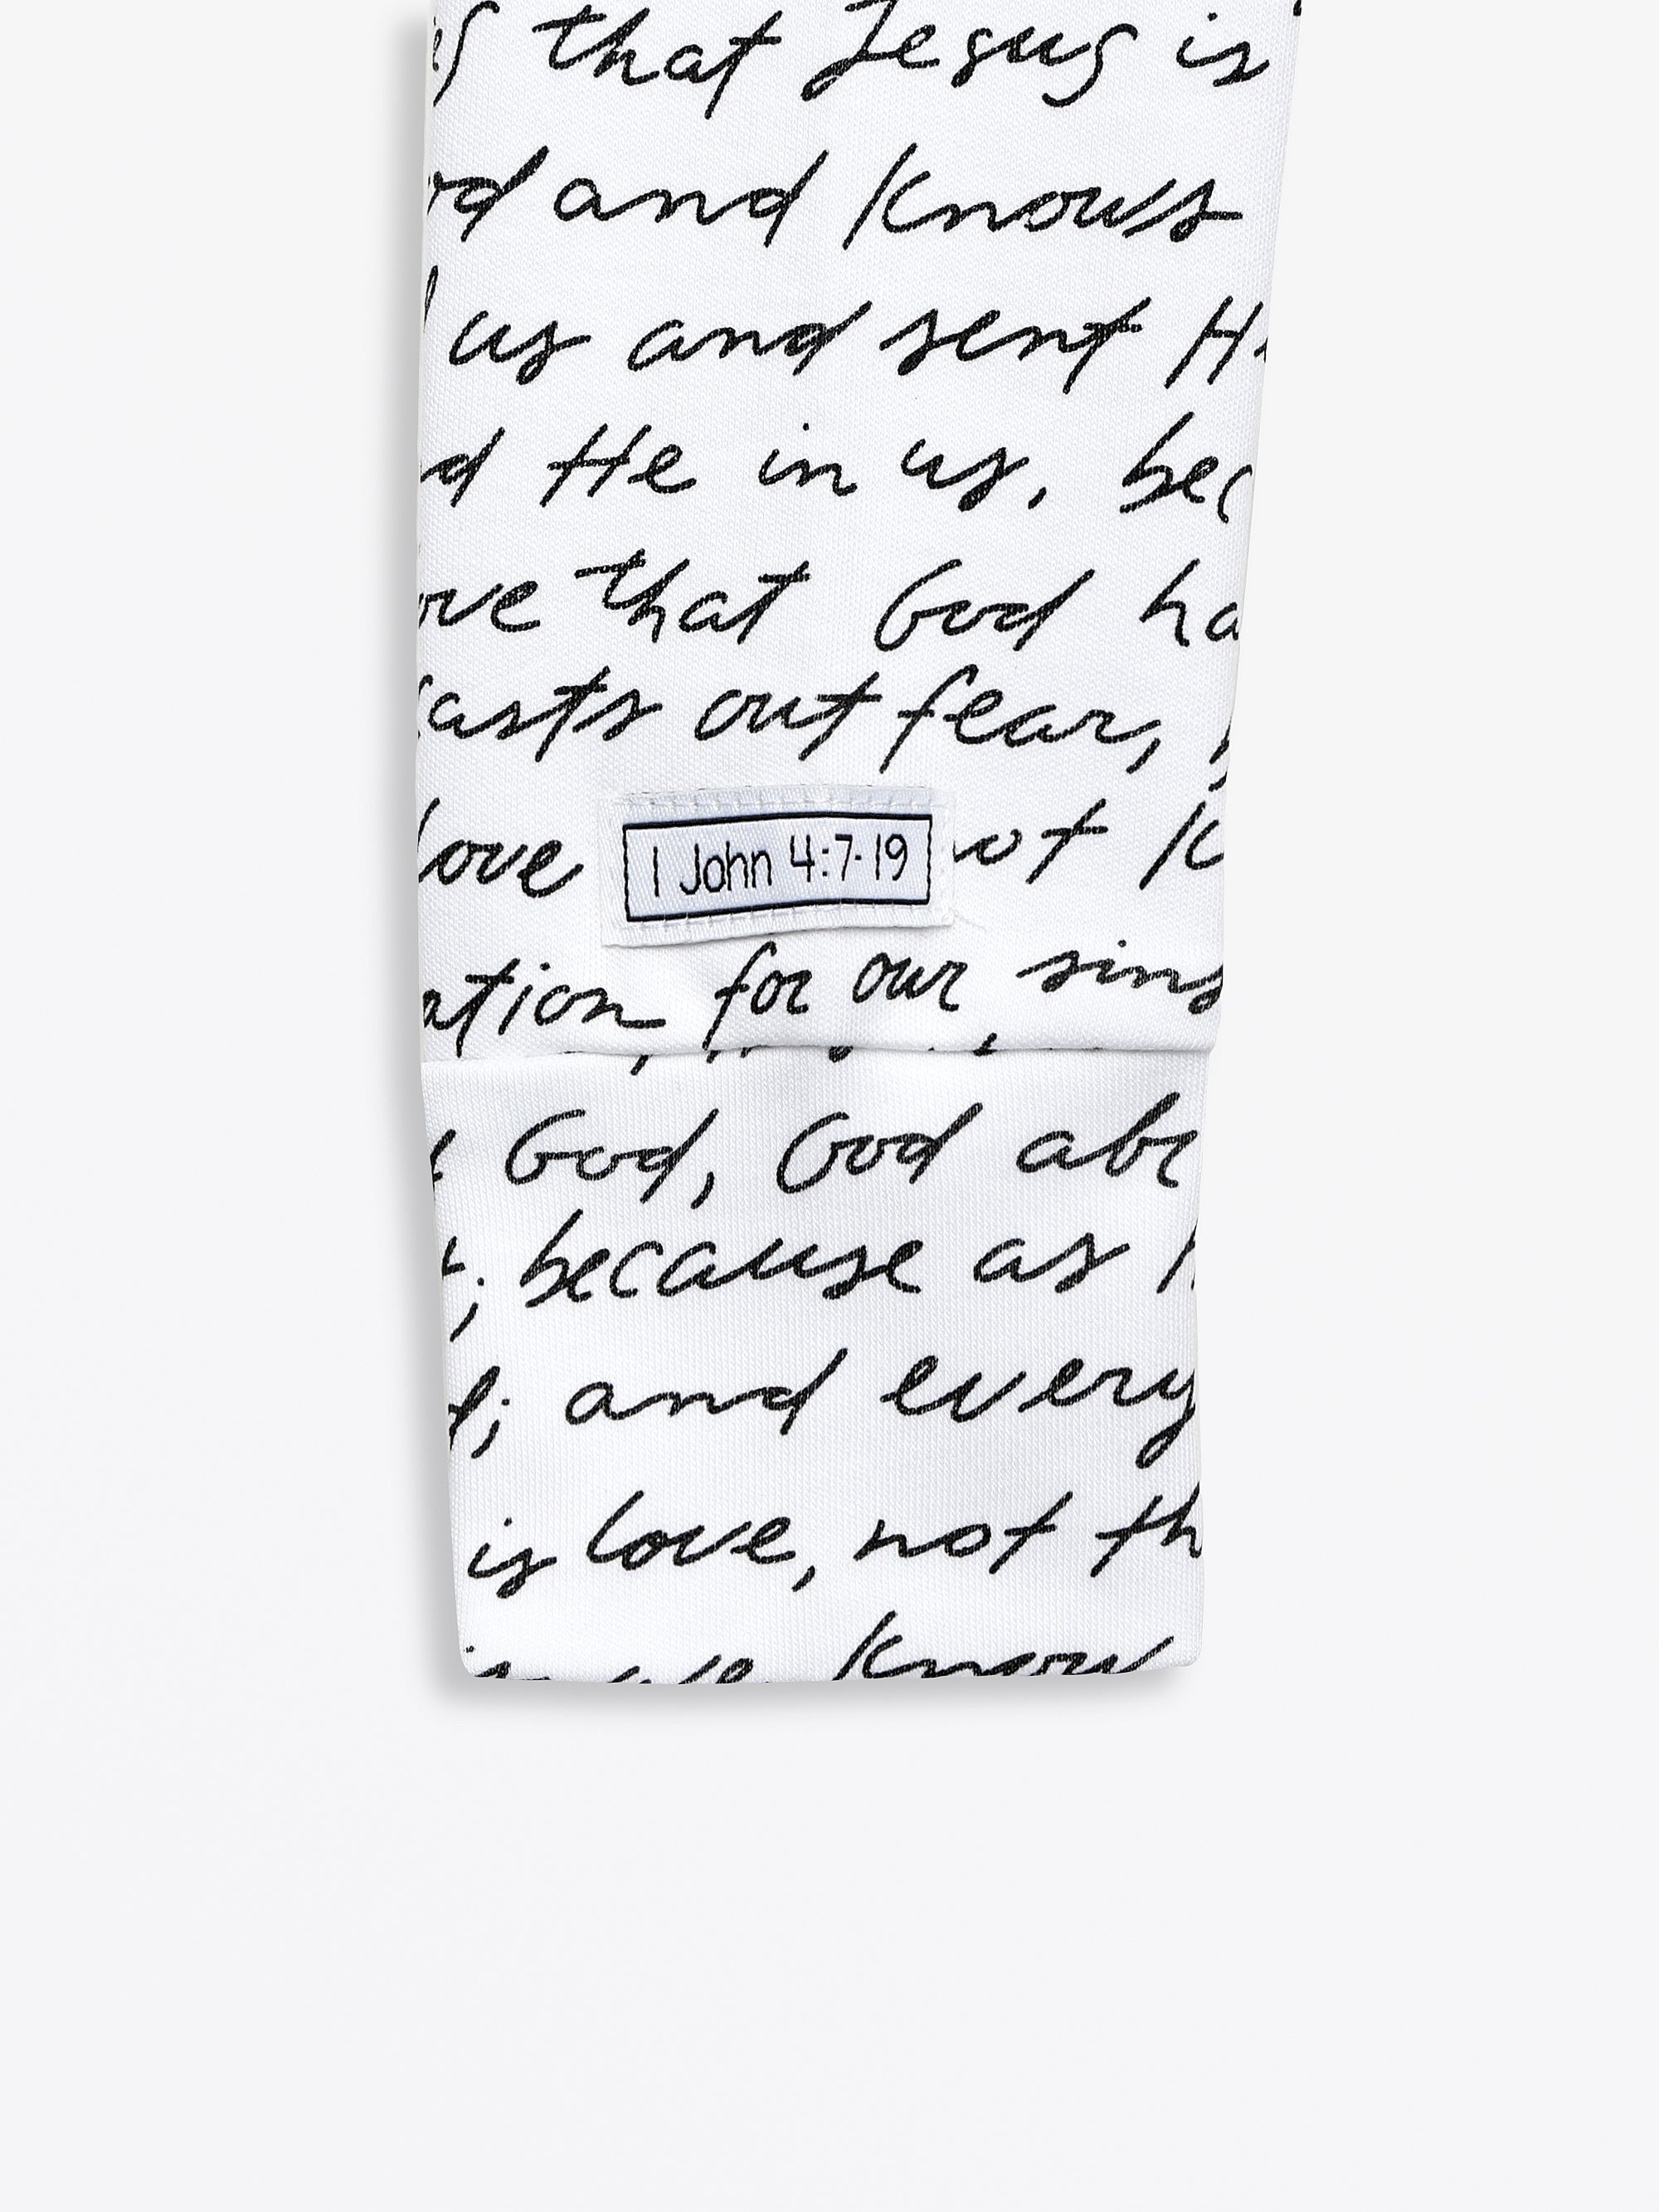 that Jesus is
and knows
us and sent
He in us, bec
ove that God ha
casts out fear,
love
1 John 4:7-19
ation for our sins
God, God
; because as
; and every
is love, not th
we know